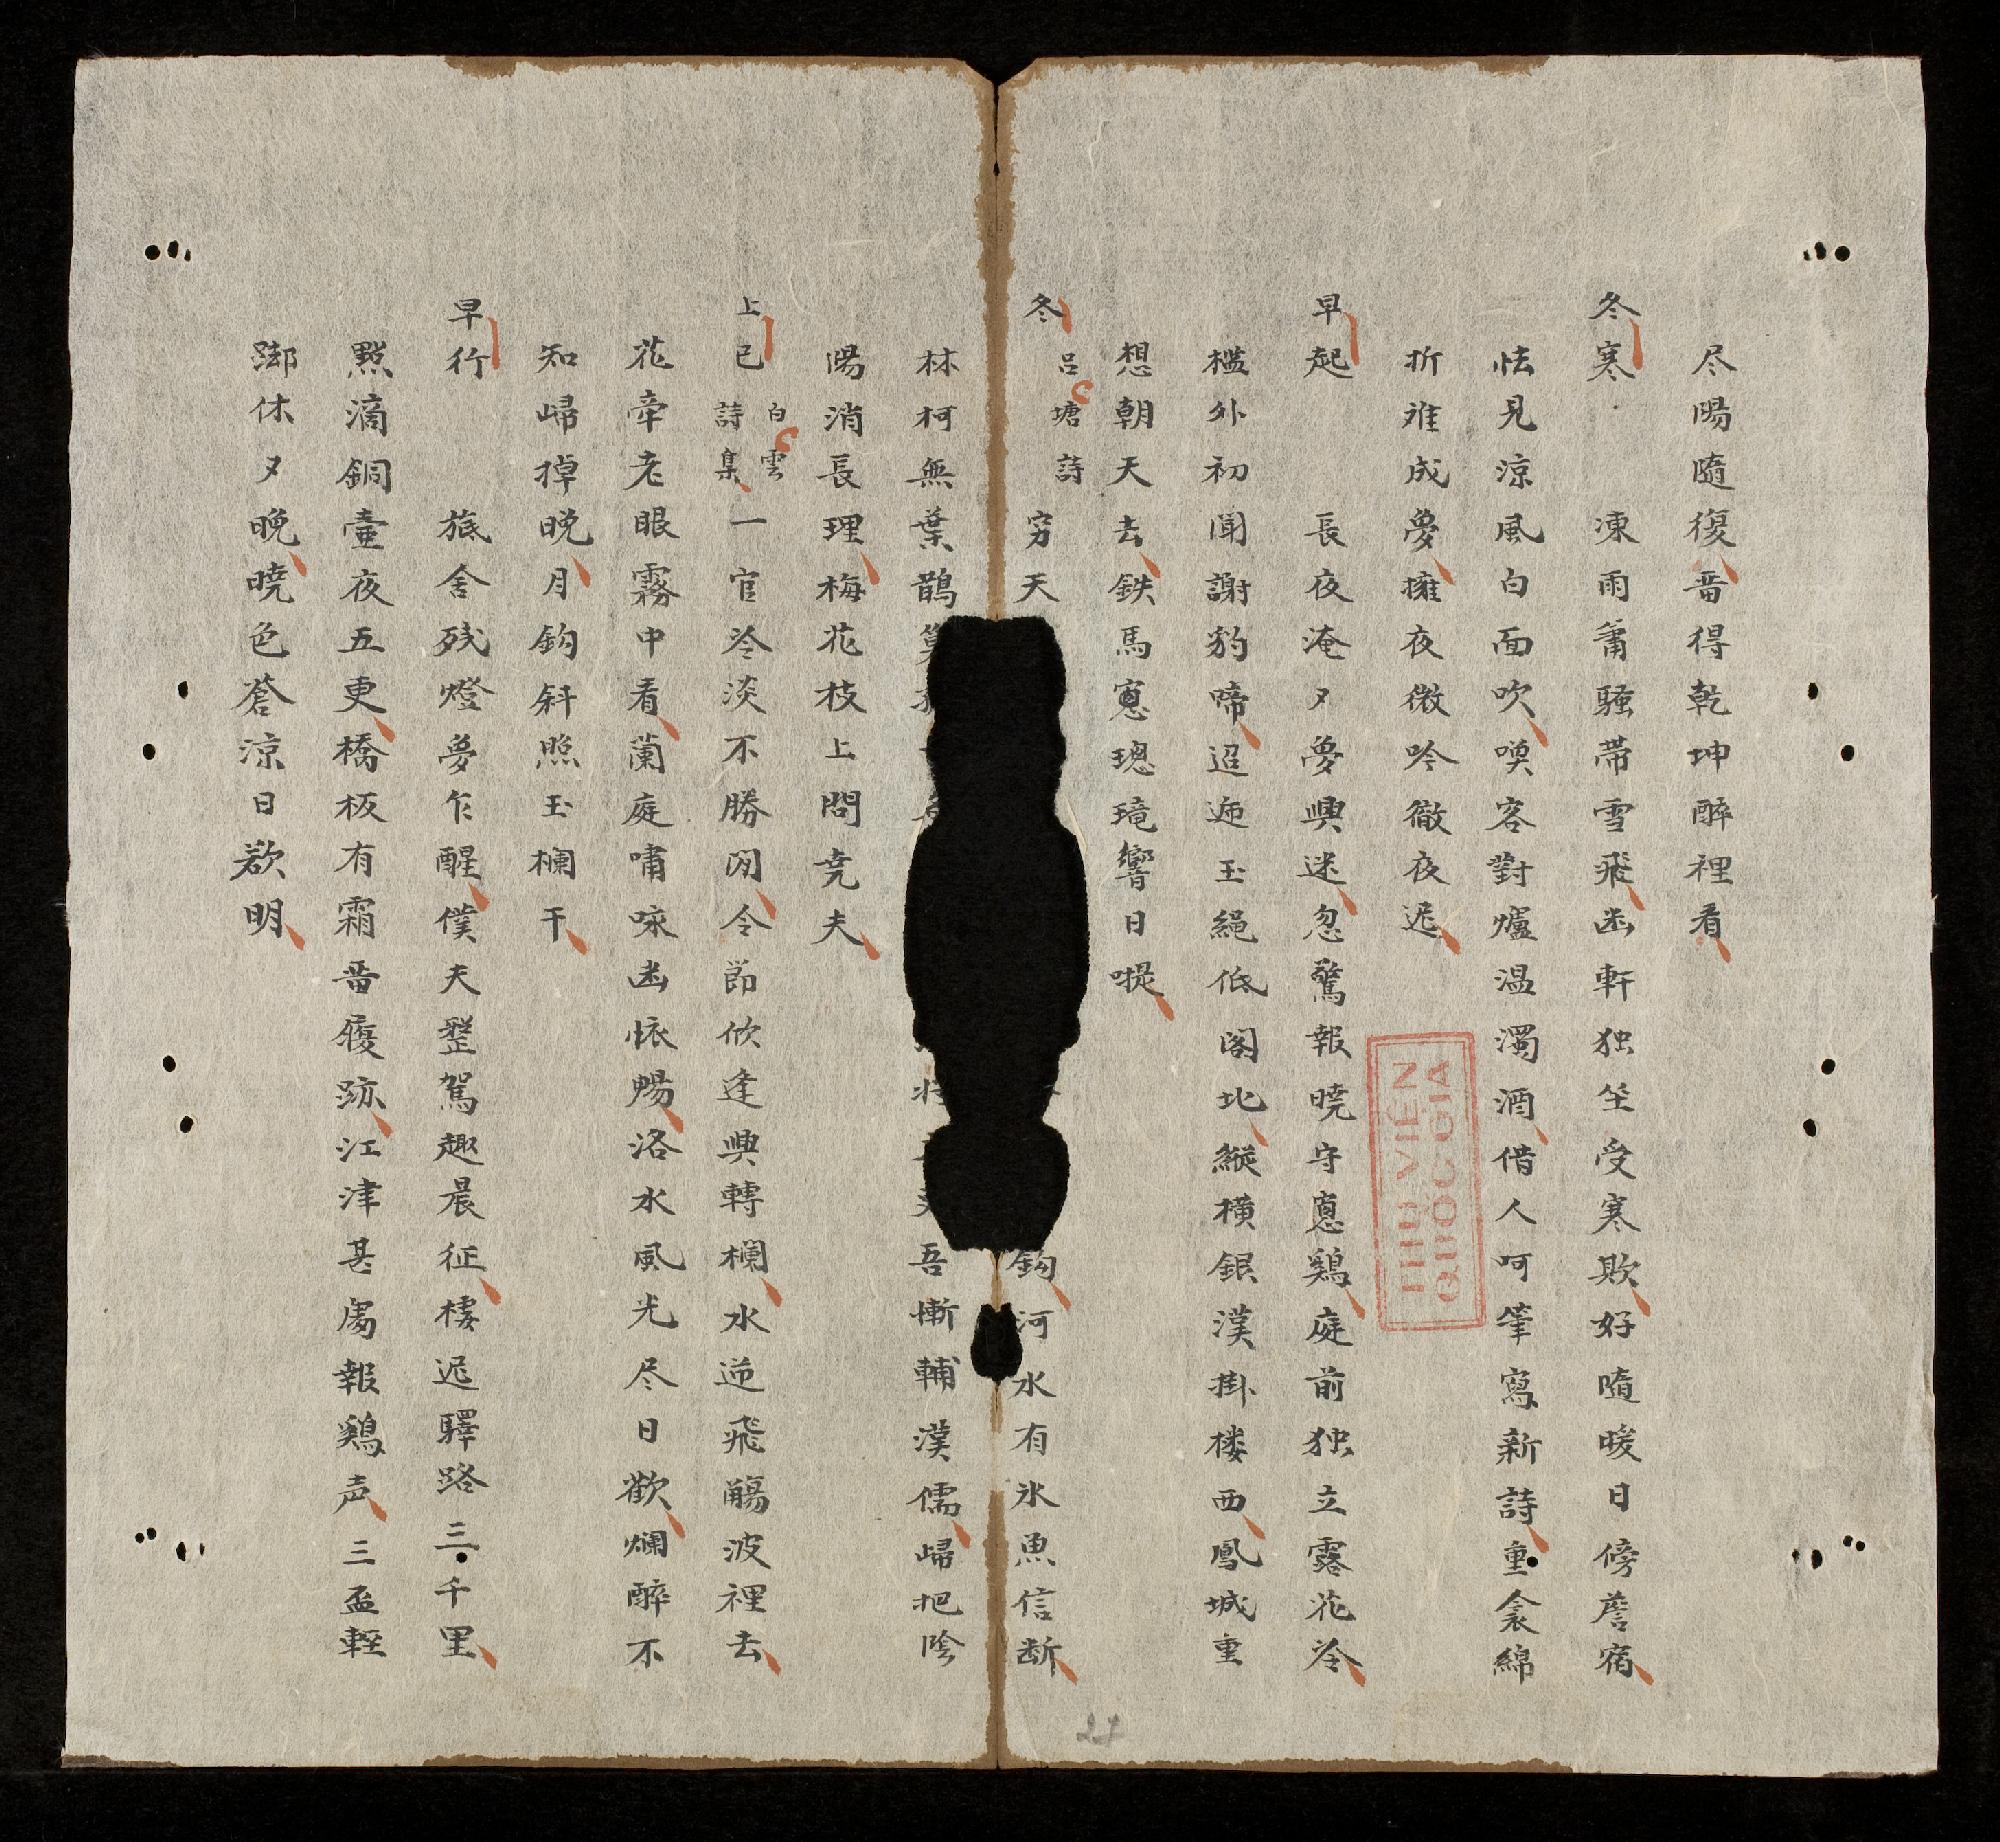 尽陽隨復嗇得乾坤醉裡看
冬寒 凍雨蕭騷帶雪飛凾軒独坐受寒欺好隨暖日傍簷宿
怯見涼風白面吹喚客對爐温濁酒借人呵筆寫新詩重衾綿
折难成夢擁夜微吟徹夜遅
早起 長夜淹々夢興迷忽驚報曉守窓鷄庭前独立露花冷
檻外初聞謝豹啼迢迤玉繩低閣北縱橫銀漢掛楼西鳳城重
想朝天去鉄馬窓璁琦響日嗁
冬 吕塘詩 穷天
鈎河水有氷魚信断
林柯無葉鵲巢
吾慚輔漢儒歸把陰
陽消長理梅花枝上問尭夫
上巳 白雲詩集 一官冷淡不勝閑令節欣逢興轉欄水逆飛觴波裡去
花牽老眼霧中看蘭庭嘯咏凾懷暢洛水風光尽日歡爛醉不
知歸掉晚月鈎斜照玉欄干
早行 旅舍残燈夢乍醒僕夫整駕趣晨征棲迟驛路三千里
點滴銅壷夜五更橋板有霜畱履跡江津甚處報鷄声三盃輕
踋休々晚曉色蒼涼日欲明
THƯ VIỆN
QUỐC GIA
27